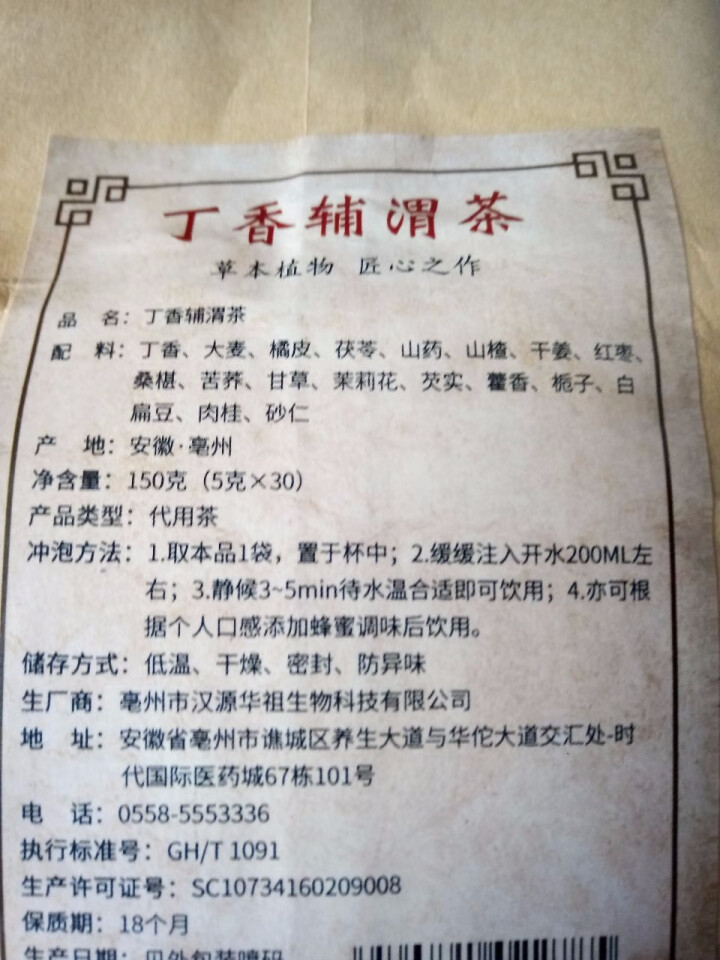 丁香辅渭茶
草本植物 匠心之作
品 名：丁香辅渭茶
配 料：丁香、大麦、橘皮、茯苓、山药、山楂、干姜、红枣、
桑椹、苦荞、甘草、茉莉花、芡实、藿香、栀子、白
扁豆、肉桂、砂仁
产 地：安徽·亳州
净含量：150克（5克×30）
产品类型：代用茶
冲泡方法：1.取本品1袋，置于杯中；2.缓缓注入开水200ML左
右；3.静候3~5min待水温合适即可饮用；4.亦可根
据个人口感添加蜂蜜调味后饮用。
储存方式：低温、干燥、密封、防异味
生厂商：亳州市汉源华祖生物科技有限公司
地 址：安徽省亳州市谯城区养生大道与华佗大道交汇处-时
代国际医药城67栋101号
电 话：0558-5553336
执行标准号：GH/T 1091
生产许可证号：SC10734160209008
保质期：18个月
生产日期：见外包装喷码